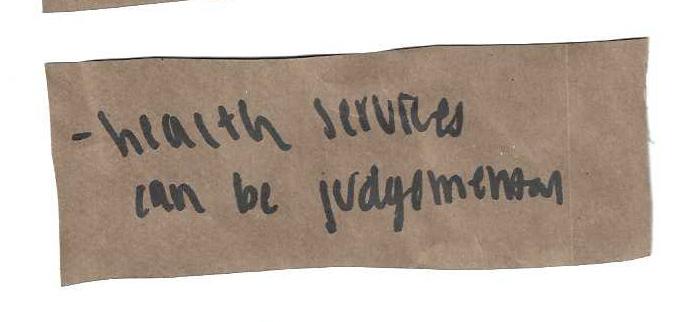 - health services
can be judgemental